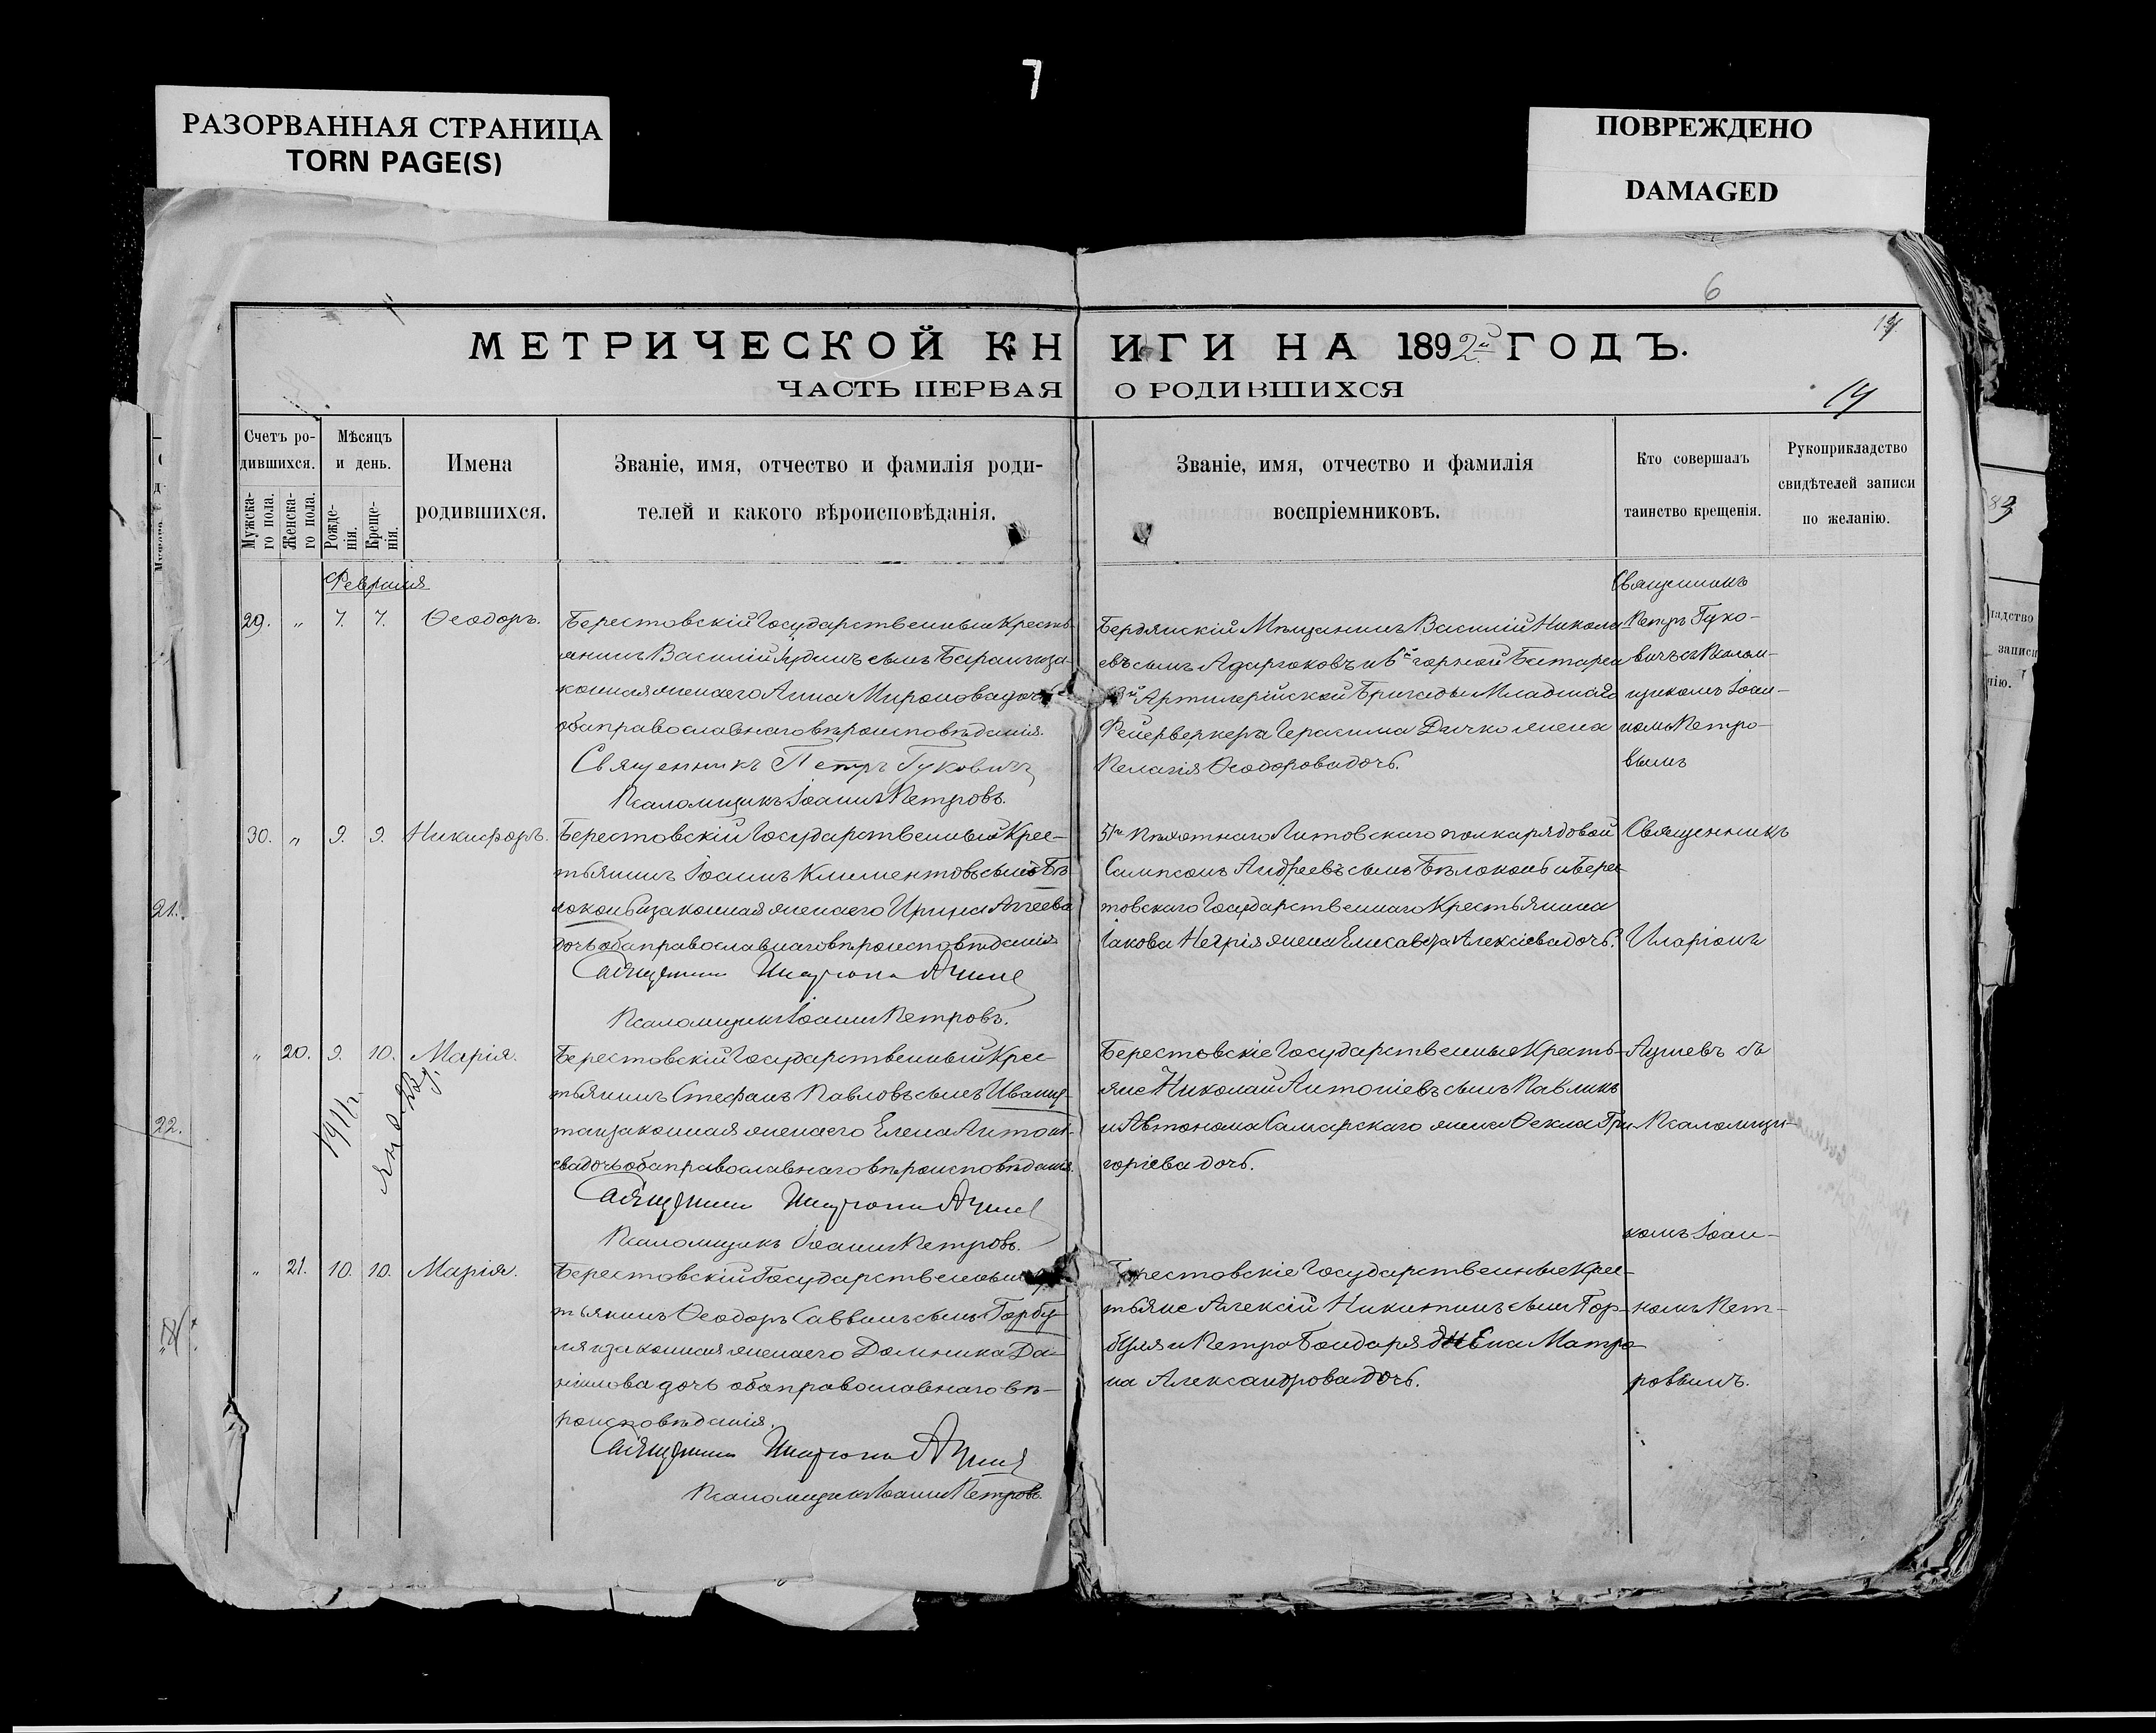 7
РАЗОРВАННАЯ СТРАНИЦА
TORN PAGE(S)
ПОВРЕЖДЕНО
DAMAGED
6
МЕТРИЧЕСКОЙ КНИГИ НА 1892й ГОДЪ.
ЧАСТЬ ПЕРВАЯ О РОДИВШИХСЯ
14
Счетъ ро-
дившихся.
Мужска-
го пола.
Женска-
го пола.
Мѣсяцъ
и день.
Рожде-
нія.
Креще-
нія.
Имена
родившихся.
Званіе, имя, отчество и фамилія роди-
телей и какого вѣроисповѣданія.
Званіе, имя, отчество и фамилія
воспріемниковъ.
Кто совершалъ
таинство крещенія.
Рукоприкладство
свидѣтелей записи
по желанію.
Февраля
29. " 7. 7. Ѳеодоръ.
Берестовскій Государственный Кресть-
янинъ Василій сынъ Баранъ и за-
конная жена его Анна Миронова дочь
оба православнаго вѣроисповѣданія.
Священникъ Петръ Гуковичъ
Псаломщикъ Іоаннъ Петровъ.
Бердянскій Мѣщанинъ Василій Никола
евъ сынъ и 6й горной Батареи
Артилерійской Бригады Младшаго
Фейерверкера Герасима Дичко жена
Пелагія Ѳеодорова дочь.
Священникъ
Петръ Гуко-
вичъ съ Псалом-
щикомъ Іоан-
номъ Петро-
вымъ
30. " 9. 9. Никифоръ.
Берестовскій Государственный Крес-
тьянинъ Іоаннъ Климентовъ сынъ Бѣ
локонь и законная жена его Ирина Аггеева
дочь оба православнаго вѣроисповѣданія
Священникъ Иларіонъ
Псаломщикъ Іоаннъ Петровъ.
51го Пѣхотнаго Литовскаго полка рядовой
Сампсонъ Андреевъ сынъ Бѣлоконь и Берес
товскаго Государственнаго Крестьянина
Іакова Негрія жена Елисавета Алексіева дочь.
Священникъ
Иларіонъ
" 20. 9. 10. Марія.
1911 г.
Берестовскій Государственный Крес-
тьянинъ Стефанъ Павловъ сынъ Иваню-
та и законная жена его Елена Антоні-
ева дочь оба православнаго вѣроисповѣданія.
Священникъ Иларіонъ
Псаломщикъ Іоаннъ Петровъ.
Берестовскіе Государственные Кресть-
яне Николай Антоніевъ сынъ Павликъ
и Автонома Самарскаго жена Ѳекла Гри
горіева дочь.
съ
Псаломщи-
комъ Іоан-
" 21. 10. 10. Марія.
Берестовскій Государственный
тьянинъ Ѳеодоръ Саввинъ сынъ Горбу
ля и законная жена его Домника Да-
ніилова дочь оба православнаго вѣ-
роисповѣданія.
Священникъ Иларіонъ
Псаломщикъ Іоаннъ Петровъ.
Берестовскіе Государственные Крес-
тьяне Алексій Никитинъ сынъ Гор-
буля и Петра Бондаря жена Матро
на Александрова дочь.
номъ Пет-
ровымъ.
21.
22.